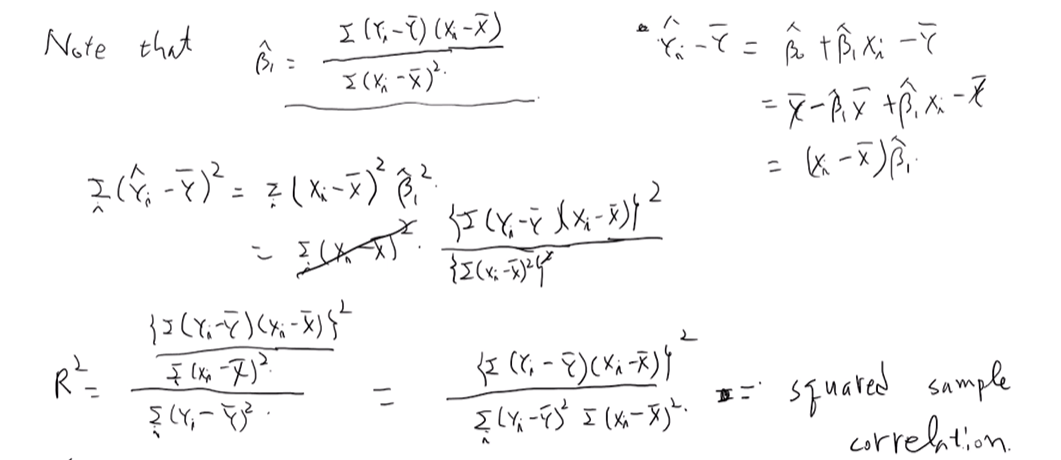 Note that β̂₁ = Σ(Yᵢ-Ȳ)(Xᵢ-X̄) / Σ(Xᵢ-X̄)².
Ŷᵢ-Ȳ = β̂₀ + β̂₁Xᵢ - Ȳ
= Ȳ - β̂₁X̄ + β̂₁Xᵢ - Ȳ
= (Xᵢ-X̄)β̂₁.
Σᵢ(Ŷᵢ-Ȳ)² = Σᵢ(Xᵢ-X̄)² β̂₁².
= Σᵢ(Xᵢ-X̄)² · {Σ(Yᵢ-Ȳ)(Xᵢ-X̄)}² / {Σ(Xᵢ-X̄)²}²
R² = {Σ(Yᵢ-Ȳ)(Xᵢ-X̄)}² / Σᵢ(Xᵢ-X̄)² / Σᵢ(Yᵢ-Ȳ)². = {Σ(Yᵢ-Ȳ)(Xᵢ-X̄)}² / Σᵢ(Yᵢ-Ȳ)² Σ(Xᵢ-X̄)². = squared sample
correlation.